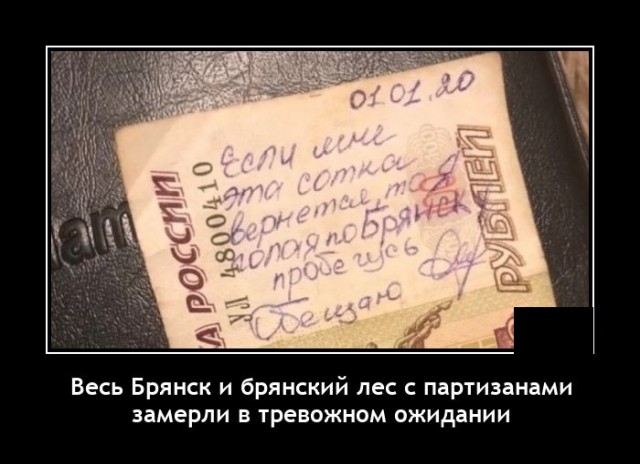 01.01.20
Если мне
эта сотка
вернется, то я
голая по Брянску
пробегусь
Обещаю
А РОССИИ
ХЛ 4800410
РУБЛЕЙ
am
Весь Брянск и брянский лес с партизанами
замерли в тревожном ожидании